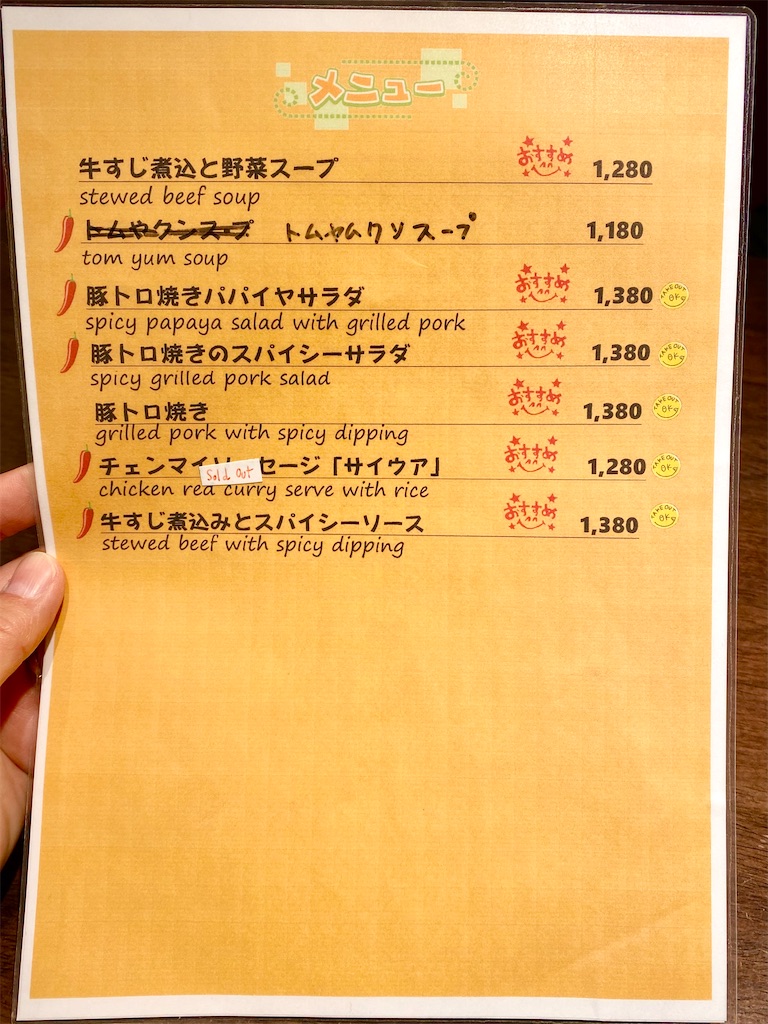 メニュー
牛すじ煮込と野菜スープ おすすめ 1,280
stewed beef soup
トムやクンスープ トムヤムクソスープ 1,180
tom yum soup
豚トロ焼きパパイヤサラダ おすすめ 1,380 TAKE OUT OK
spicy papaya salad with grilled pork
豚トロ焼きのスパイシーサラダ おすすめ 1,380 TAKE OUT OK
spicy grilled pork salad
豚トロ焼き おすすめ 1,380 TAKE OUT OK
grilled pork with spicy dipping
チェンマイソ Sold Out セージ「サイウア」 おすすめ 1,280 TAKE OUT OK
chicken red curry serve with rice
牛すじ煮込みとスパイシーソース おすすめ 1,380 TAKE OUT OK
stewed beef with spicy dipping